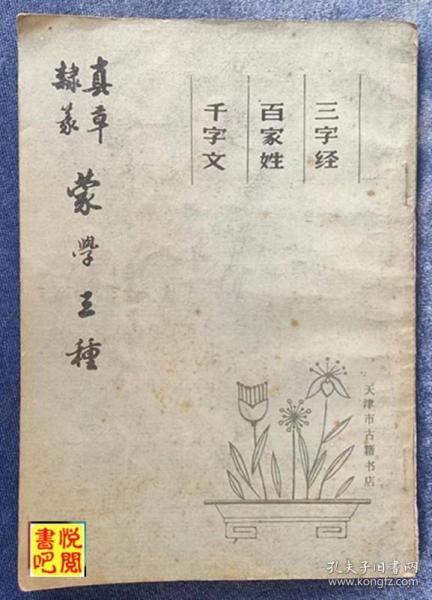 三字经
百家姓
千字文
真草
隷篆
蒙学三種
天津市古籍书店
悦閲
書吧
孔夫子旧书网
www.kongfz.com